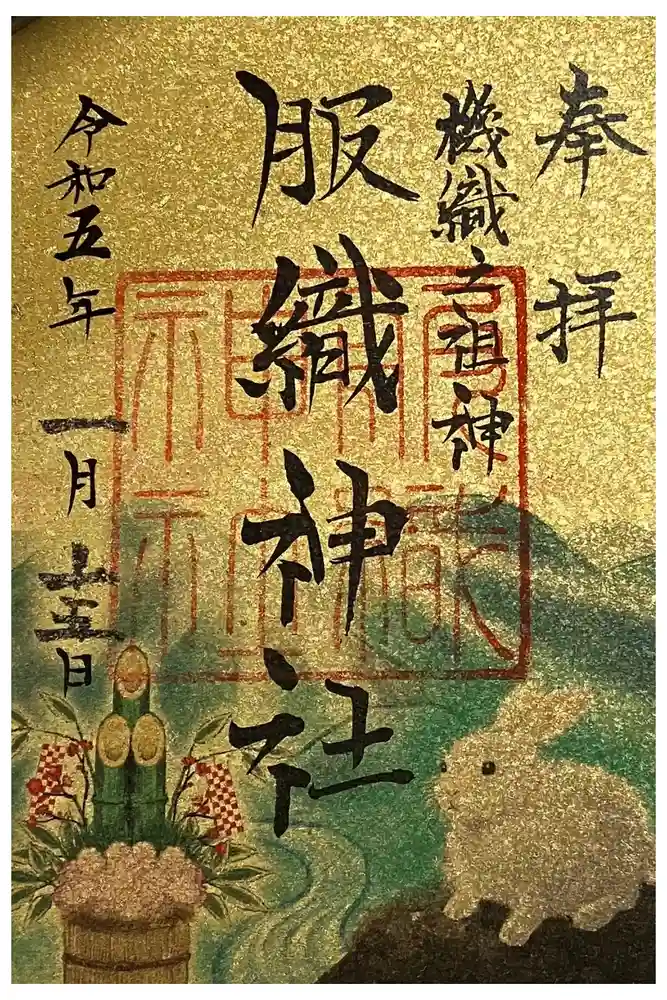 奉拝
機織之祖神
服織神社
服織神社
令和五年 一月 五日